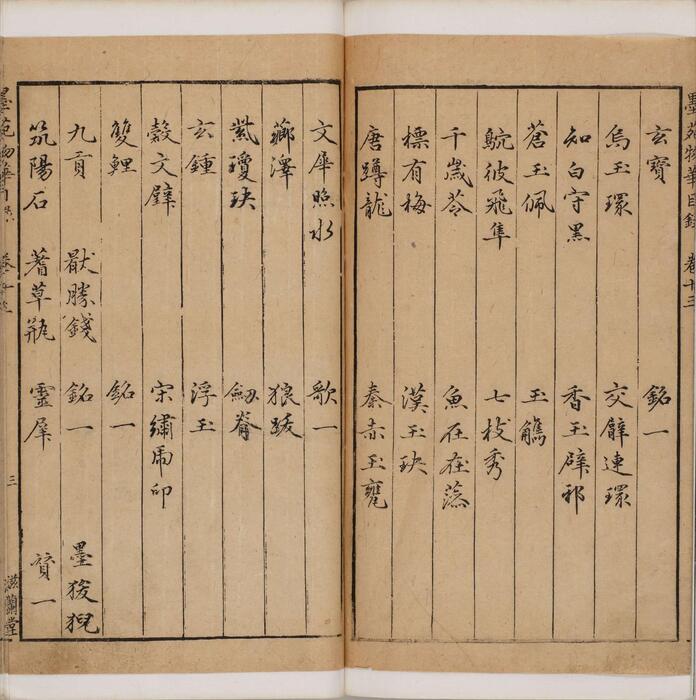 墨苑物華目錄 卷十三
玄寶 銘一
烏玉環 交臂連環
知白守黑 香玉辟邪
蒼玉佩 玉觿
鴥彼飛隼 七枝秀
千歲苓 魚在在藻
標有梅 漢玉玦
唐蹲龍 秦赤玉甕
文犀照水 歌一
薌澤 狼跋
紫瓊玦 劔脊
玄鍾 浮玉
穀文璧 宋繡虎印
雙鯉 銘一
九貢 厭勝錢 銘一 墨狻猊
筑陽石 蓍草瓶 靈犀 贊一
三 滋蘭堂